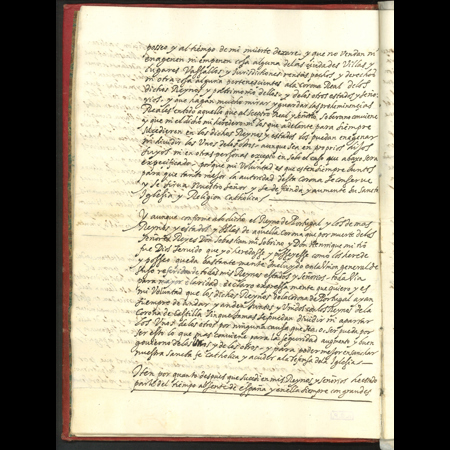 posseo y al tiempo de mi muerte dexare, y que no vendan ni
enagenen ni empeñen cosa alguna de las ciudades Villas y
lugares Vassallos, y Jurisdictiones rentas pechos, y derechos
ni otra cosa alguna pertenesçientes a la corona Real de los
dichos Reynos y patrimonio dellos, y de los otros estados y seño
rios, y que hagan mucho mirar y guardar las preheminencias
Reales en todo aquello que al sceptro Real, y señorio soberano conviene
y que ni el dicho mi heredero ni los que adelante para siempre
succedieren en los dichos Reynos y estados los puedan enagenar
ni diuidir los Unos de los otros aunque sea en proprios hijos
suyos ni en otras personas excepto en solo el caso que abaxo sera
expecificado, porque mi voluntad es que esten siempre juntos
para que tanto mejor la autoridad de la corona se conserue
y se sirua nuestro señor y se defienda, y aumente su sancta
Iglesia y Religion catholica
Y aunque conforme a lo dicho el Reyno de Portugal y los demas
Reynos y estados, y Islas de aquella corona que por muerte de los
señores Reyes Don Sebastian mi sobrino y Don Henrique mi tio
fue Dios seruido que yo heredasse y posseyesse como los herede
y posseo queda bastantemente incluydo en el vinculo general de
suso referido de todos mis Reynos estados y señorios, toda via
para mayor claridad declaro expressamente que quiero y es
mi voluntad que los dichos Reynos de la corona de Portugal ayan
siempre de andar y anden juntos y Vnidos con los Reynos de la
Corona de Castilla sin que jamas se puedan diuidir ni apartar
los Unos de los otros por ninguna cosa que sea o ser pueda por
ser esto lo que mas conviene para la seguridad augmento y buen
gouierno de los Unos, y de los otros y para poder mejor ensanchar
nuestra sancta fe catholica y acudir a la defensa de la Iglesia
Iten por quanto despues que succedi en mis Reynos y señorios he estado
parte del tiempo absente de españa y en ella siempre con grandes